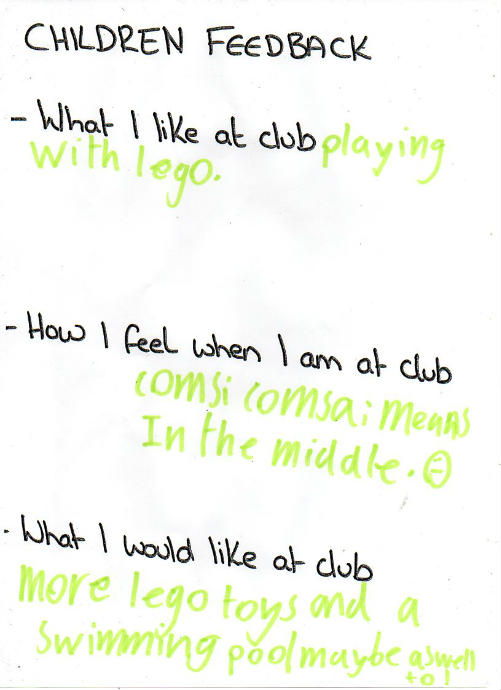 CHILDREN FEEDBACK
- What I like at club playing
with lego.
- How I feel when I am at club
comsi comsai means
In the middle.
- What I would like at club
more lego toys and a
swimming pool maybe aswell
to!